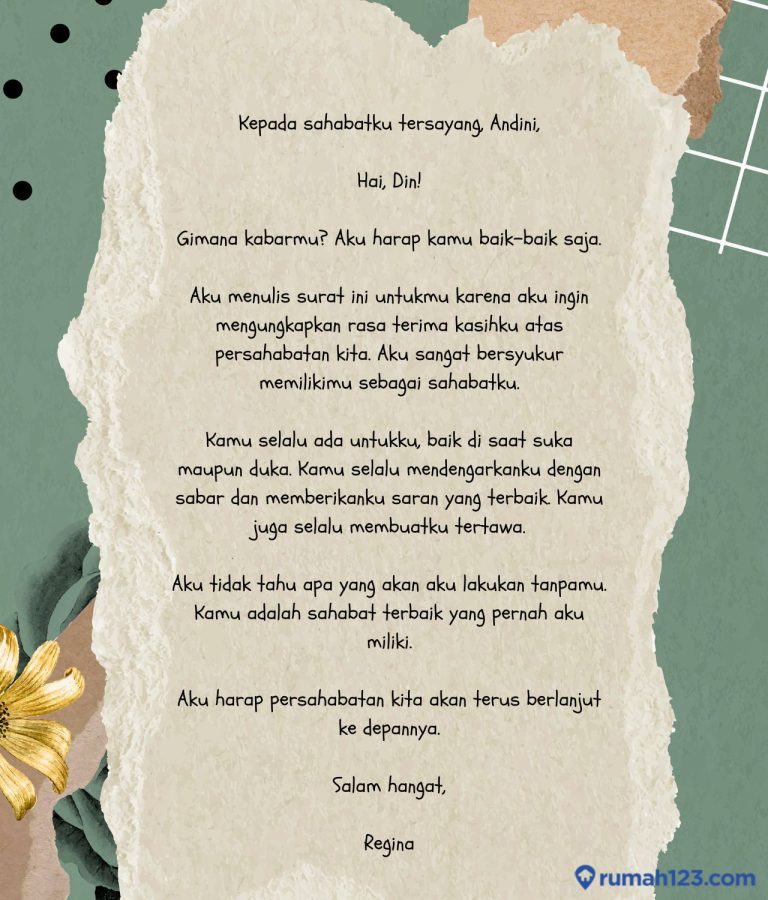 Kepada sahabatku tersayang, Andini,
Hai, Din!
Gimana kabarmu? Aku harap kamu baik-baik saja.
Aku menulis surat ini untukmu karena aku ingin
mengungkapkan rasa terima kasihku atas
persahabatan kita. Aku sangat bersyukur
memilikimu sebagai sahabatku.
Kamu selalu ada untukku, baik di saat suka
maupun duka. Kamu selalu mendengarkanku dengan
sabar dan memberikanku saran yang terbaik. Kamu
juga selalu membuatku tertawa.
Aku tidak tahu apa yang akan aku lakukan tanpamu.
Kamu adalah sahabat terbaik yang pernah aku
miliki.
Aku harap persahabatan kita akan terus berlanjut
ke depannya.
Salam hangat,
Regina
rumah123.com